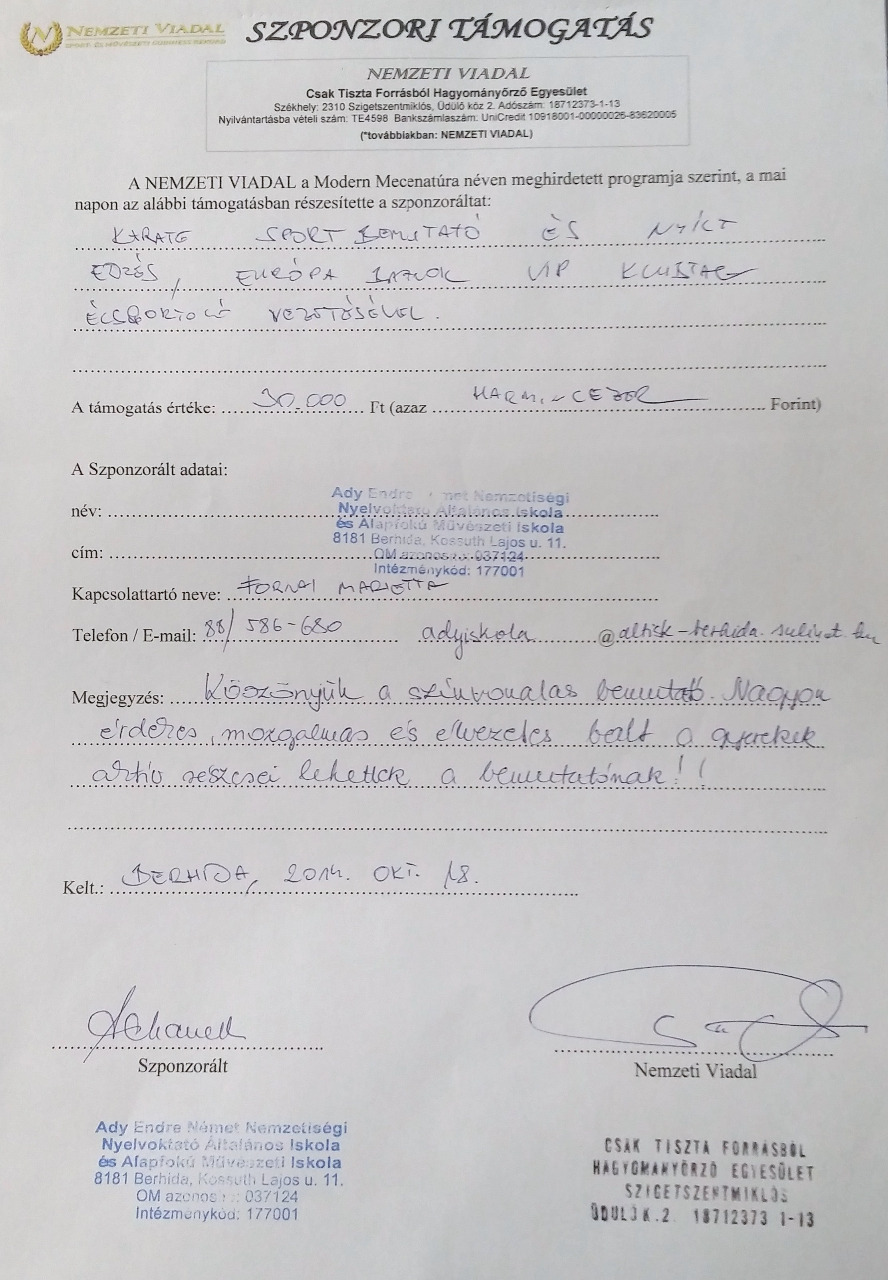 NEMZETI VIADAL
SPORT- ÉS MŰVÉSZETI BUSINESS REKORD
SZPONZORI TÁMOGATÁS
NEMZETI VIADAL
Csak Tiszta Forrásból Hagyományőrző Egyesület
Székhely: 2310 Szigetszentmiklós, Üdülő köz 2. Adószám: 18712373-1-13
Nyilvántartásba vételi szám: TE4598 Bankszámlaszám: UniCredit 10918001-00000026-83620005
(*továbbiakban: NEMZETI VIADAL)
A NEMZETI VIADAL a Modern Mecenatúra néven meghirdetett programja szerint, a mai
napon az alábbi támogatásban részesítette a szponzoráltat:
KARATE SPORT BEMUTATÓ ÉS NYÍLT
EDZÉS, EURÓPA BAJNOK VIP
VEZETÉSÉVEL.
A támogatás értéke: 30.000 Ft (azaz HARMINCEZER Forint)
A Szponzorált adatai:
Ady Endre Német Nemzetiségi
név: Nyelvoktató Általános Iskola
és Alapfokú Művészeti Iskola
8181 Berhida, Kossuth Lajos u. 11.
cím: OM azonosító: 037124
Intézménykód: 177001
Kapcsolattartó neve: FORNAI MARIETTA
Telefon / E-mail: 88/586-680 adyiskola @altisk-berhida.sulinet.hu
Megjegyzés: Köszönjük a színvonalas bemutató. Nagyon
érdekes, mozgalmas és élvezetes volt a gyerekek
aktív részesei lehettek a bemutatónak!!
Kelt.: BERHIDA, 2014. OKT. 18.
Szponzorált
Nemzeti Viadal
Ady Endre Német Nemzetiségi
Nyelvoktató Általános Iskola
és Alapfokú Művészeti Iskola
8181 Berhida, Kossuth Lajos u. 11.
OM azonosító: 037124
Intézménykód: 177001
CSAK TISZTA FORRÁSBÓL
HAGYOMÁNYŐRZŐ EGYESÜLET
SZIGETSZENTMIKLÓS
ÜDÜLŐ K.2. 18712373 1-13